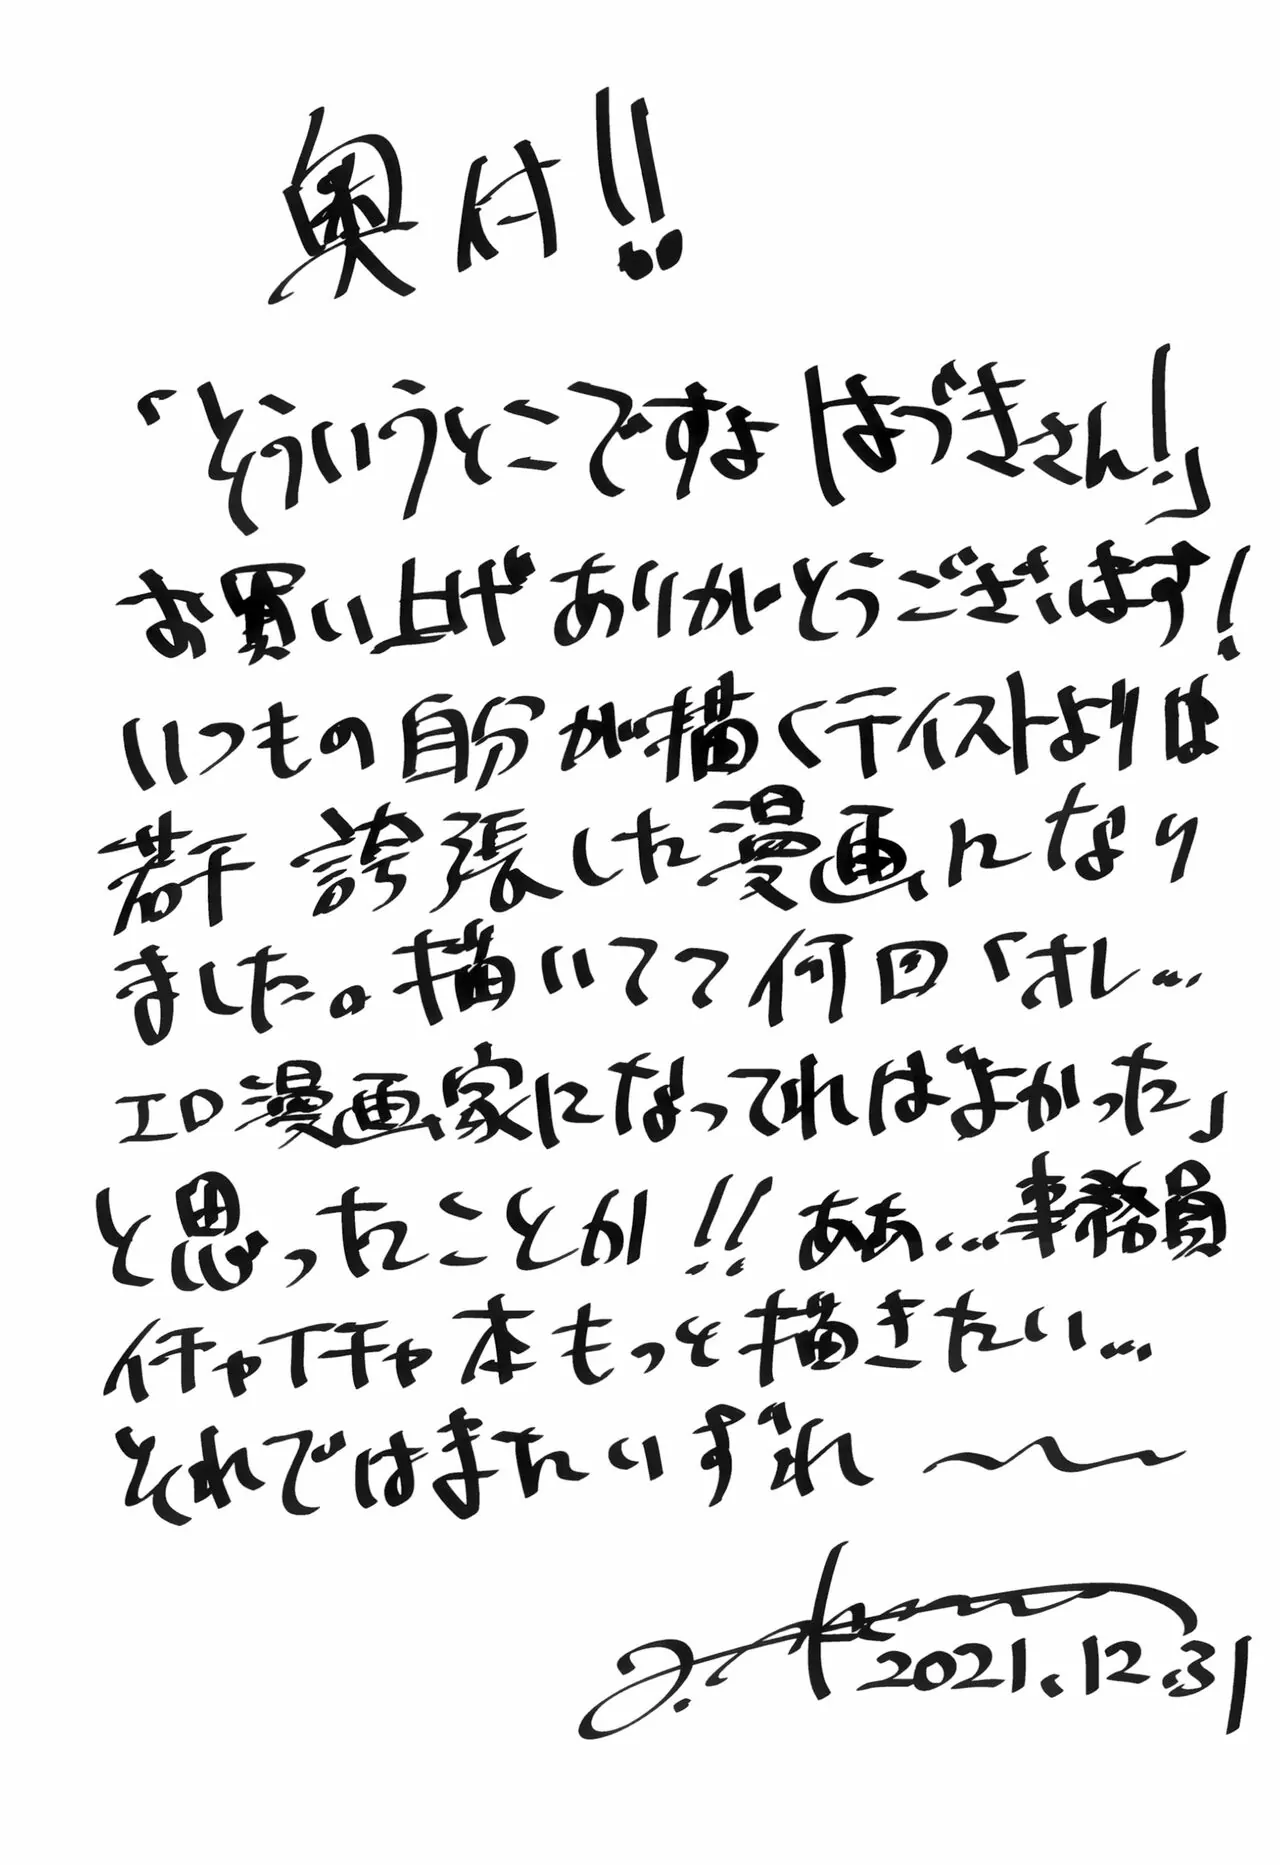 奥付!!
「そういうとこですよ はづきさん!」
お買い上げありがとうございます!
いつもの自分が描くテイストよりは
若干 誇張した漫画になり
ました。描いてて何回「オレ…
エロ漫画家になってればよかった」
と思ったことか!! ああ…事務員
イチャイチャ本もっと描きたい…
それではまたいずれ〜
2021.12.31